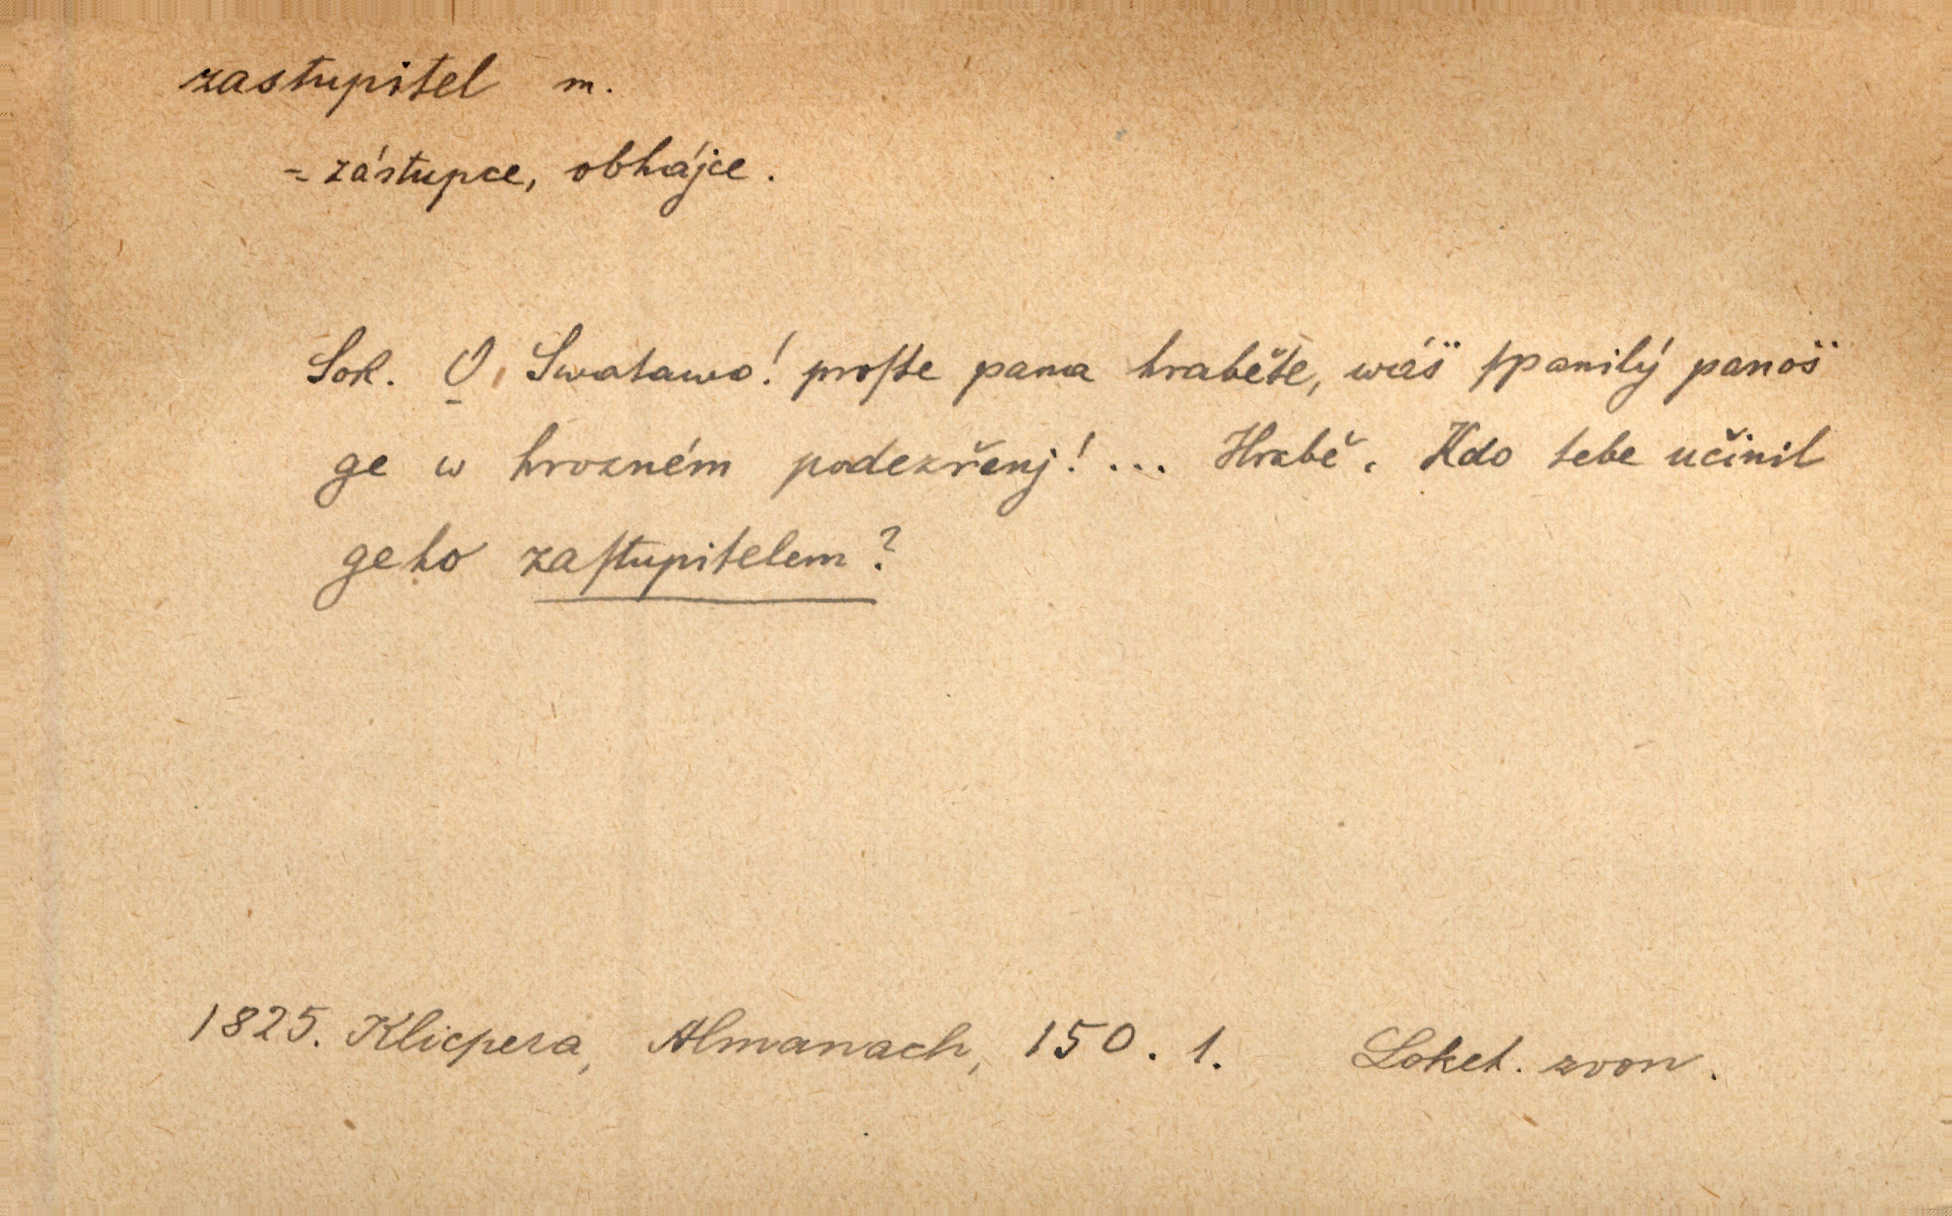 zastupitel m.
= zástupce, obhájce.
Sok. O, Swatawo! proſte pana hraběte, wás̈ ſpanilý panos̈
ge w hrozném podezřenj! ... Hrabě. Kdo tebe učinil
geho zaſtupitelem?
1825. Klicpera, Almanach, 150. 1. Loket. zvon.